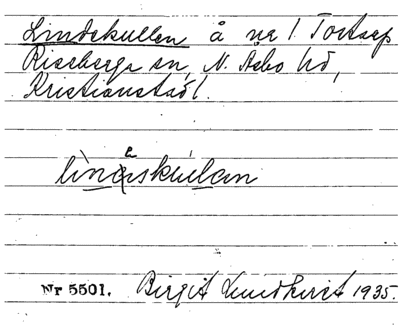 Lindekullen å nr 1 Tortsep
Riseberga sn, N. Åsbo hd,
Kristianstad l.
linəskúlan
Nr 5501. Birgit Lundkvist 1935.